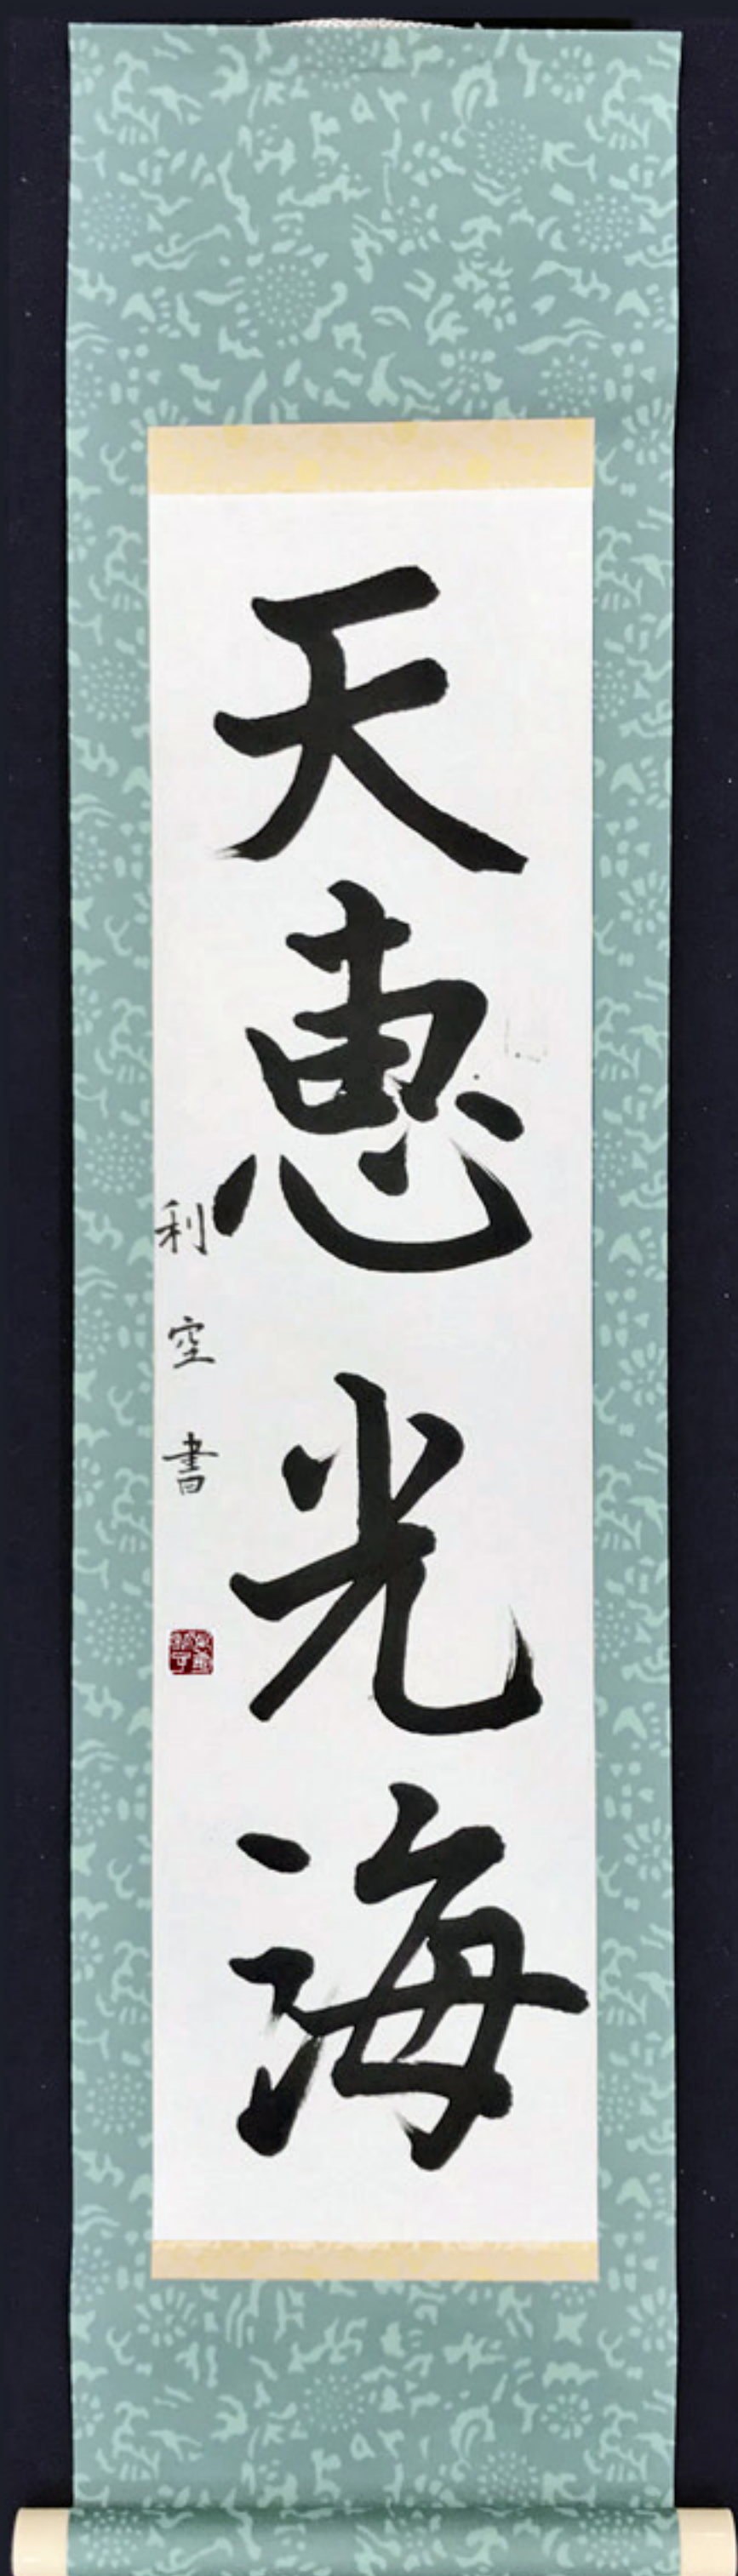 天恵光海
利空書